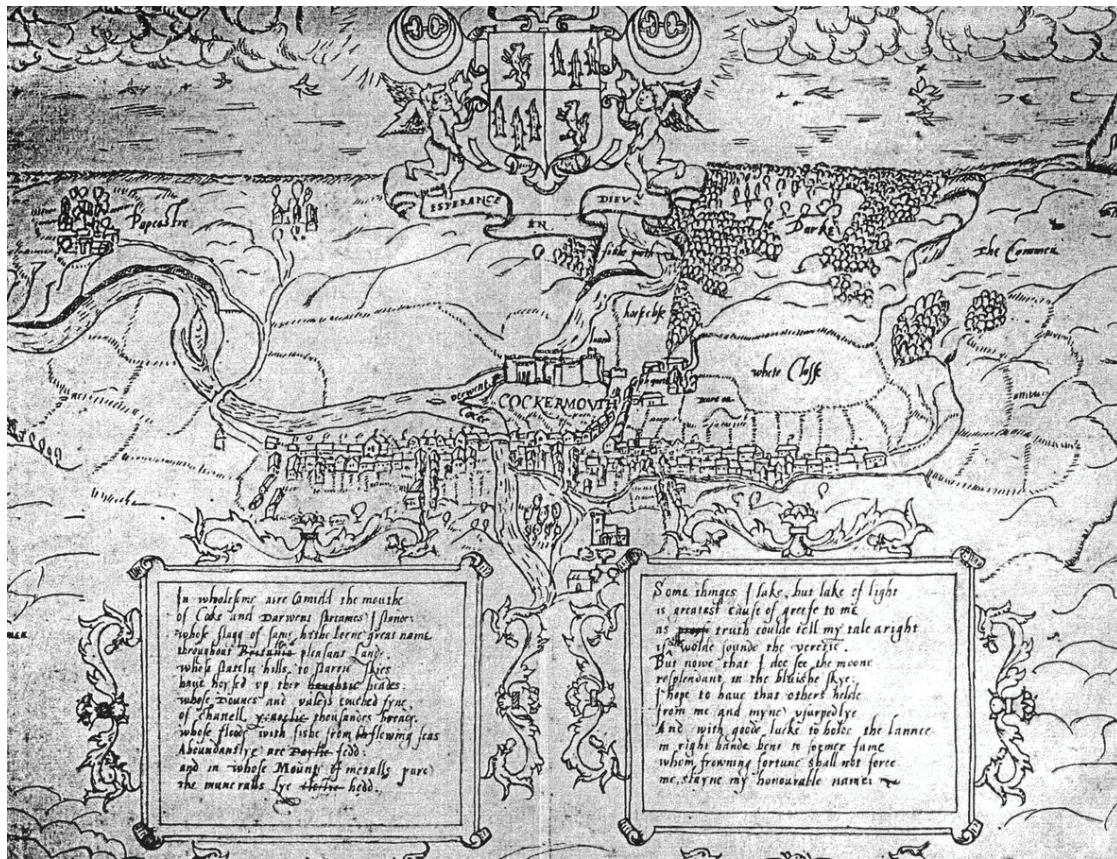 ESPERANCE
EN
DIEV
Papcastre
Parke
The Common
horsclose
whete Closse
Derwent
Cocker
COCKERMOUTH
In wholesome aire amidd the mouthe
of Coke and Darwent streames I stand:
whose flagg of fame hathe borne great name
throughout Britania pleasant Lande.
whose stately hills to starrie skies
have hoysed up ther haughtie heades:
whose Dounes and valeis touched fyne
of Chattell thousandes breades.
whose floods with fishe from flowing seas
Aboundantlye are Darlie fedd:
and in whose Mounts of metalls pure
the muneralls lye hedd.
Some thinges I lake, but lake of light
is greatest cause of greefe to me
as truth coulde tell my tale aright
if wolde sounde the veretie.
But nowe that I doe see the moone
resplendant in the bluishe skye:
I hope to have that others helde
from me and myne usurpedlye
And with goode lucke to holde the lannce
in right hande bent to former fame
whom frowning fortune shall not force
me stayne my honourable name: